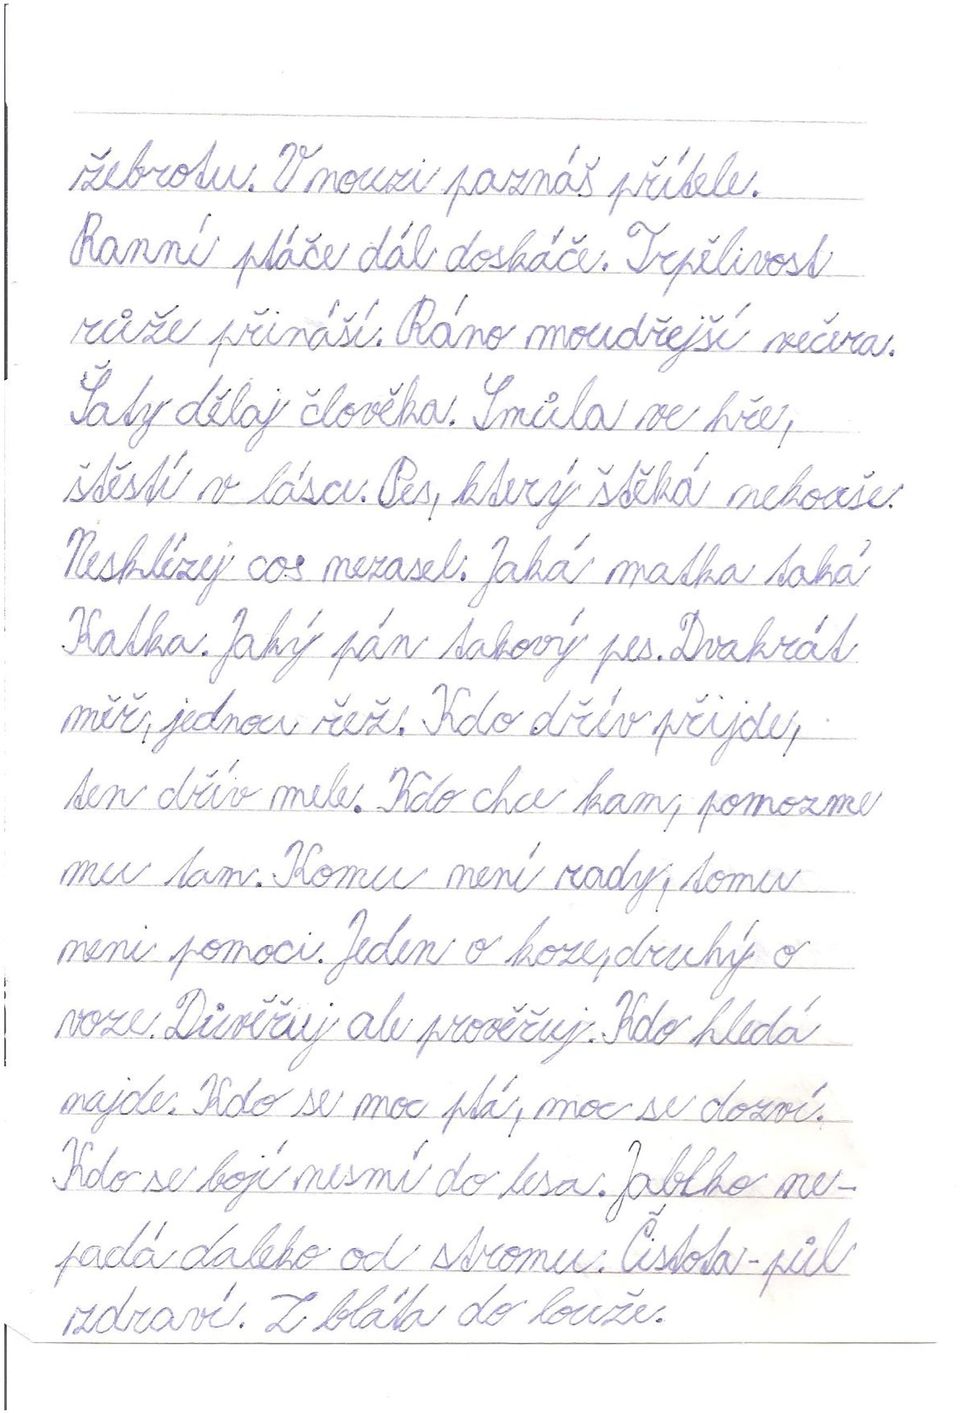 žebrotu. V nouzi paznáš přítele.
Ranní ptáče dál doskáče. Trpělivost
růže přináší. Ráno moudřejší večera.
Šaty dělaj člověka. Smůla ve hře,
štěstí v lásce. Pes, který štěká nekouše.
Nesklízej cos nezasel. Jaká matka taká
Katka. Jaký pán takový pes. Dvakrát
měř, jednou řež. Kdo dřív přijde,
ten dřív mele. Kdo chce kam, pomozme
mu tam. Komu není rady, tomu
neni pomoci. Jeden o koze, druhý o
voze. Důvěřuj ale prověřuj. Kdo hledá
najde. Kdo se moc ptá, moc se dozví.
Kdo se bojí nesmí do lesa. Jablko ne-
padá daleko od stromu. Čistota - půl
zdraví. Z bláta do louže.